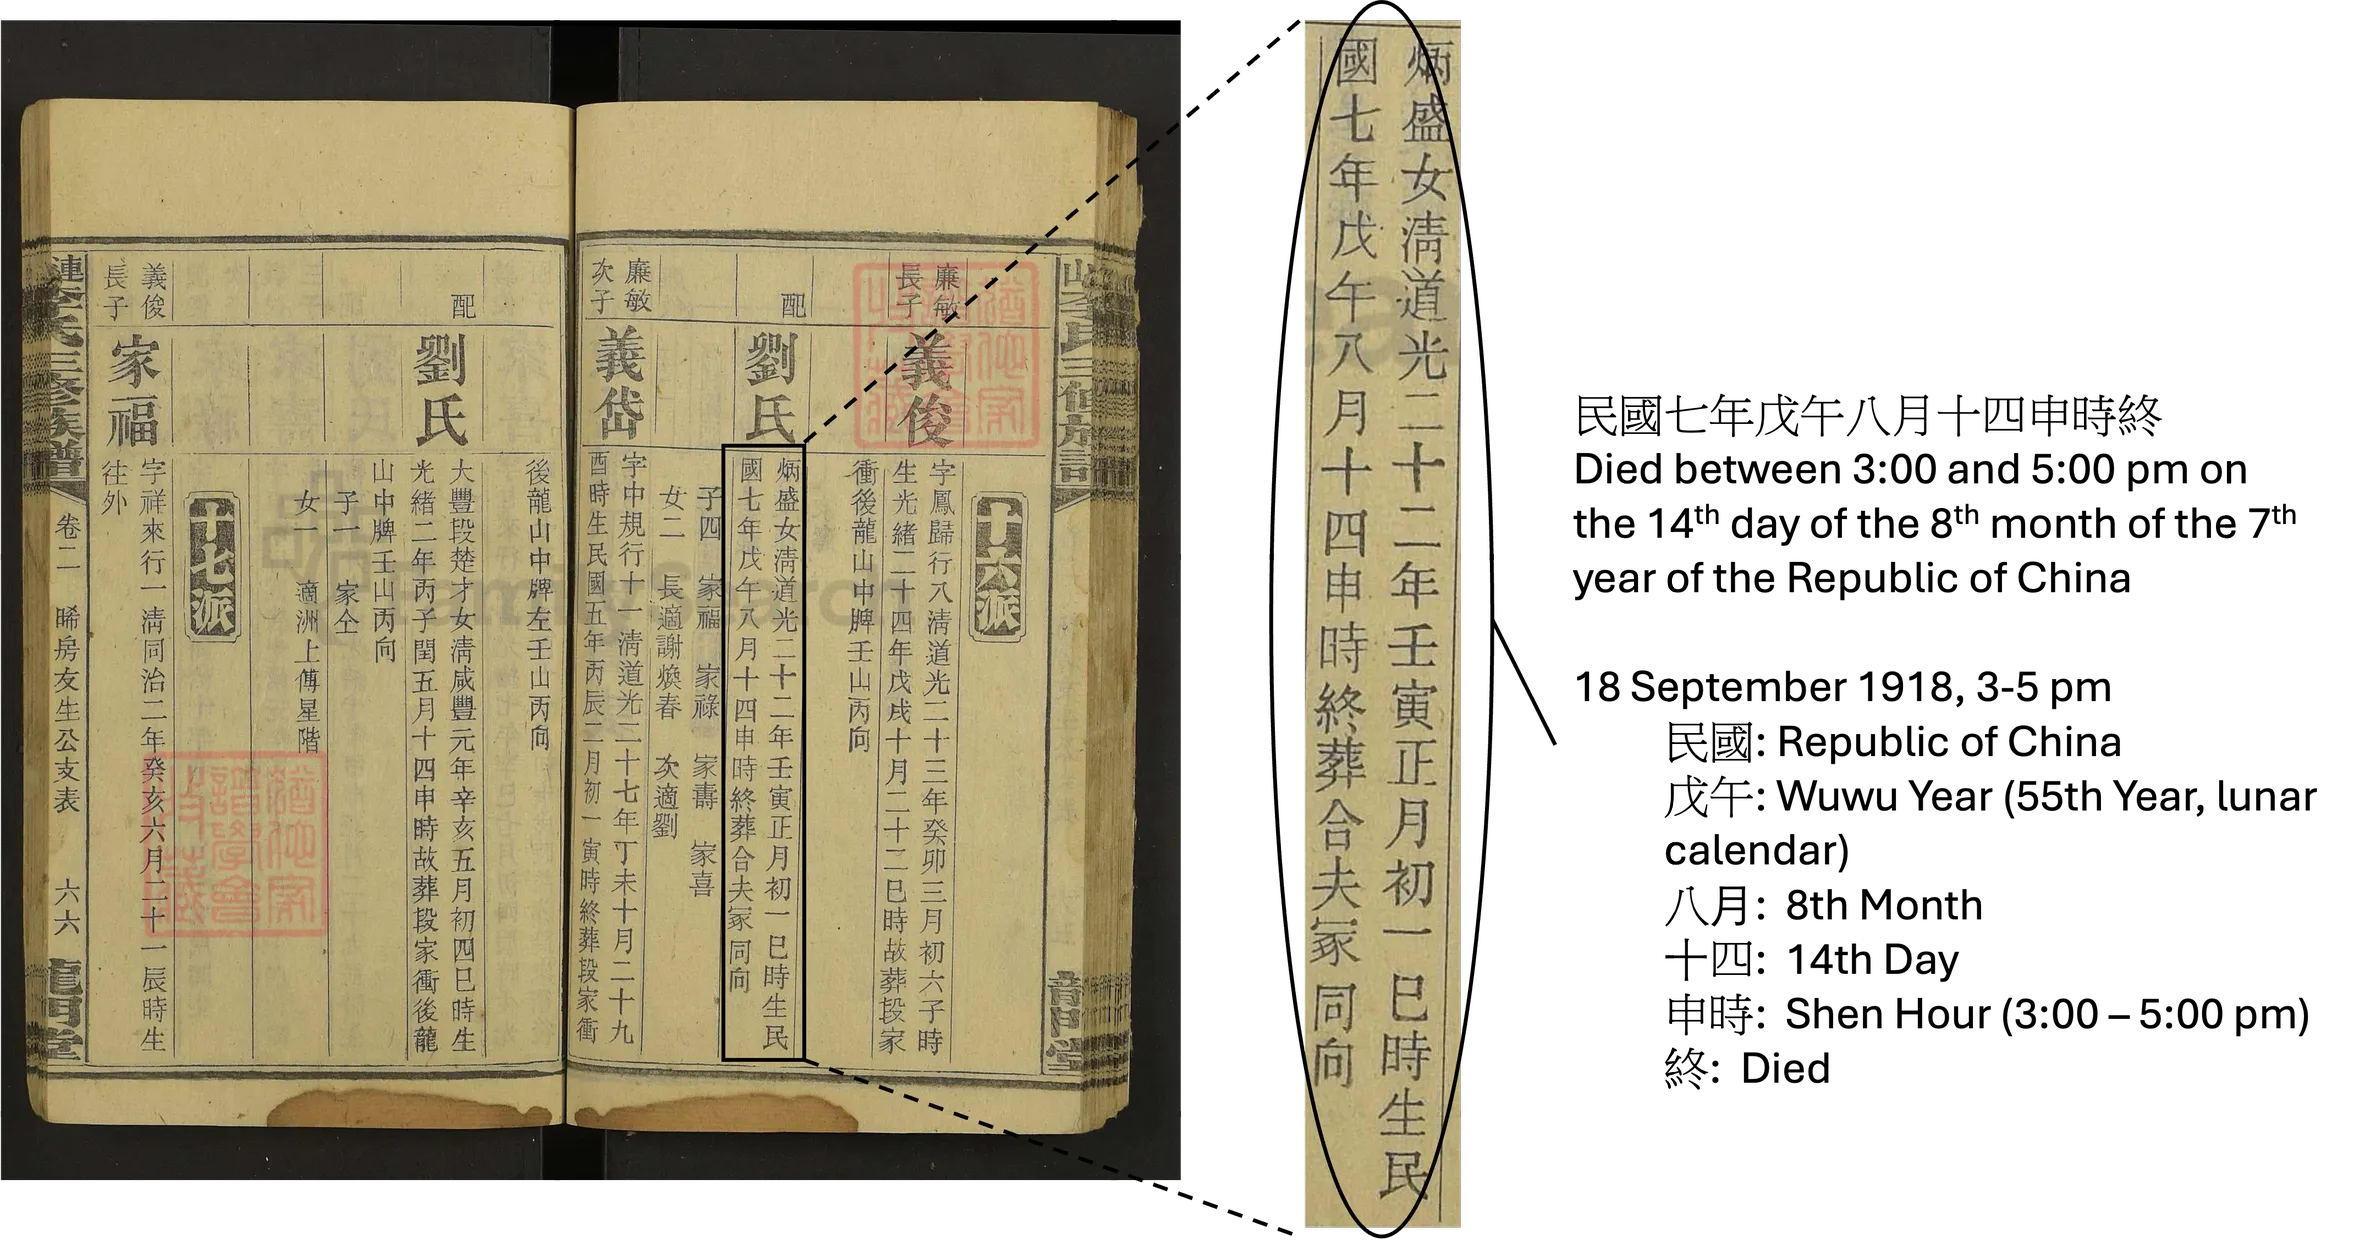 十六派
廉敏
長子
義俊
字鳳歸行八淸道光二十三年癸卯三月初六子時
生光緒二十四年戊戌十月二十二巳時故葬段家
衝後龍山中牌壬山丙向
配
劉氏
炳盛女淸道光二十二年壬寅正月初一巳時生民
國七年戊午八月十四申時終葬合夫冢同向
子四 家福 家祿 家壽 家喜
女二 長適謝煥春 次適劉
廉敏
次子
義岱
字中規行十一淸道光二十七年丁未十月二十九
酉時生民國五年丙辰二月初一寅時終葬段家衝
後龍山中牌左壬山丙向
配
劉氏
大豐段楚才女淸咸豐元年辛亥五月初四巳時生
光緒二年丙子閏五月十四申時故葬段家衝後龍
山中牌壬山丙向
子一 家仝
女一 適洲上傅星階
十七派
義俊
長子
家福
字祥來行一淸同治二年癸亥六月二十一辰時生
往外
漣李氏三修族譜 卷二 晞房友生公支表 六六 龍門堂
FamilySearch
炳盛女淸道光二十二年壬寅正月初一巳時生民
國七年戊午八月十四申時終葬合夫冢同向
民國七年戊午八月十四申時終
Died between 3:00 and 5:00 pm on
the 14th day of the 8th month of the 7th
year of the Republic of China
18 September 1918, 3-5 pm
民國: Republic of China
戊午: Wuwu Year (55th Year, lunar
calendar)
八月: 8th Month
十四: 14th Day
申時: Shen Hour (3:00 – 5:00 pm)
終: Died